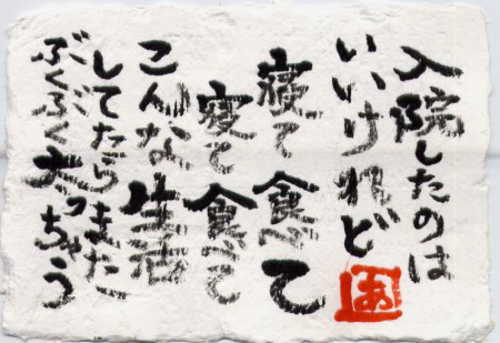 入院したのは
いいけれど
寝て食べて
寝て食べて
こんな生活
してたらまた
ぶくぶく太っちゃう